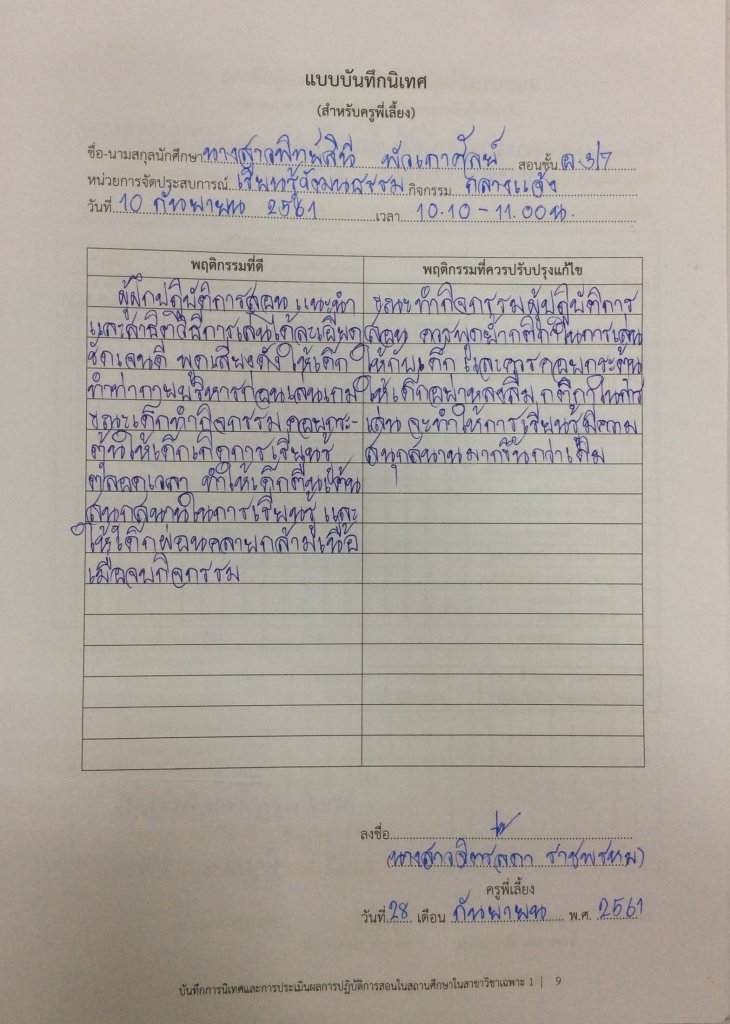 แบบบันทึกนิเทศ
(สำหรับครูพี่เลี้ยง)
ชื่อ-นามสกุลนักศึกษา นางสาวพิทย์สินี พัวเกาศัลย์ สอนชั้น อ.3/7
หน่วยการจัดประสบการณ์ เรียนรู้วัฒนธรรม กิจกรรม กลางแจ้ง
วันที่ 10 กันยายน 2561 เวลา 10.10 - 11.00 น.
พฤติกรรมที่ดี
ผู้ฝึกปฏิบัติการสอน แนะนำ
และสาธิตวิธีการเล่นได้ละเอียด
ชัดเจนดี พูดเสียงดัง ให้เด็ก
ทำท่ากายบริหารก่อนเล่นเกม
ขณะเด็กทำกิจกรรม คอยกระ-
ตุ้นให้เด็กเกิดการเรียนรู้
ตลอดเวลา ทำให้เด็กตื่นเต้น
สนุกสนานในการเรียนรู้ และ
ให้เด็กผ่อนคลายกล้ามเนื้อ
เมื่อจบกิจกรรม
พฤติกรรมที่ควรปรับปรุงแก้ไข
ขณะทำกิจกรรมผู้ปฏิบัติการ
สอน ควรพูดย้ำกติกาในการเล่น
ให้กับเด็ก และควรคอยกระตุ้น
ให้เด็กอย่าหลงลืม กติกาในการ
เล่น จะทำให้การเรียนรู้มีความ
สนุกสนานมากขึ้นกว่าเดิม
ลงชื่อ
(นางสาวจิตรลดา ราชพรหม)
ครูพี่เลี้ยง
วันที่ 28 เดือน กันยายน พ.ศ. 2561
บันทึกการนิเทศและการประเมินผลการปฏิบัติการสอนในสถานศึกษาในสาขาวิชาเฉพาะ 1 | 9